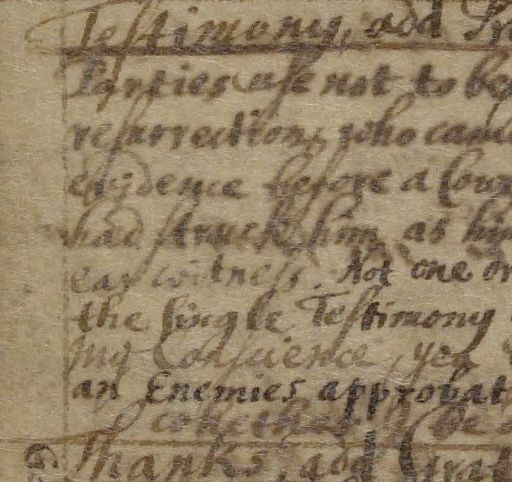 Testimony, add
Parties use not to be
resurrection, who came
evidence before a Cour
had struck him as hi
ear witness. Not one or
the single Testimony
my Conscience, yea
an Enemies approbat
whether be
Thanks, add Grat